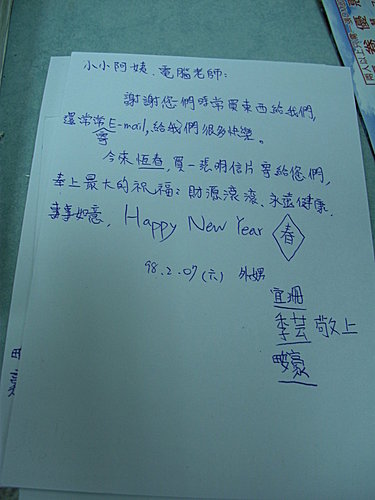 小小阿姨、電腦老師:
謝謝您們時常買東西給我們,
還常常寄E-mail,給我們很多快樂。
今來恆春,買一張明信片寄給您們,
奉上最大的祝福:財源滾滾、永遠健康、
事事如意。Happy New Year 春
98.2.07(六) 外甥
宜珊
季芸 敬上
畯豪